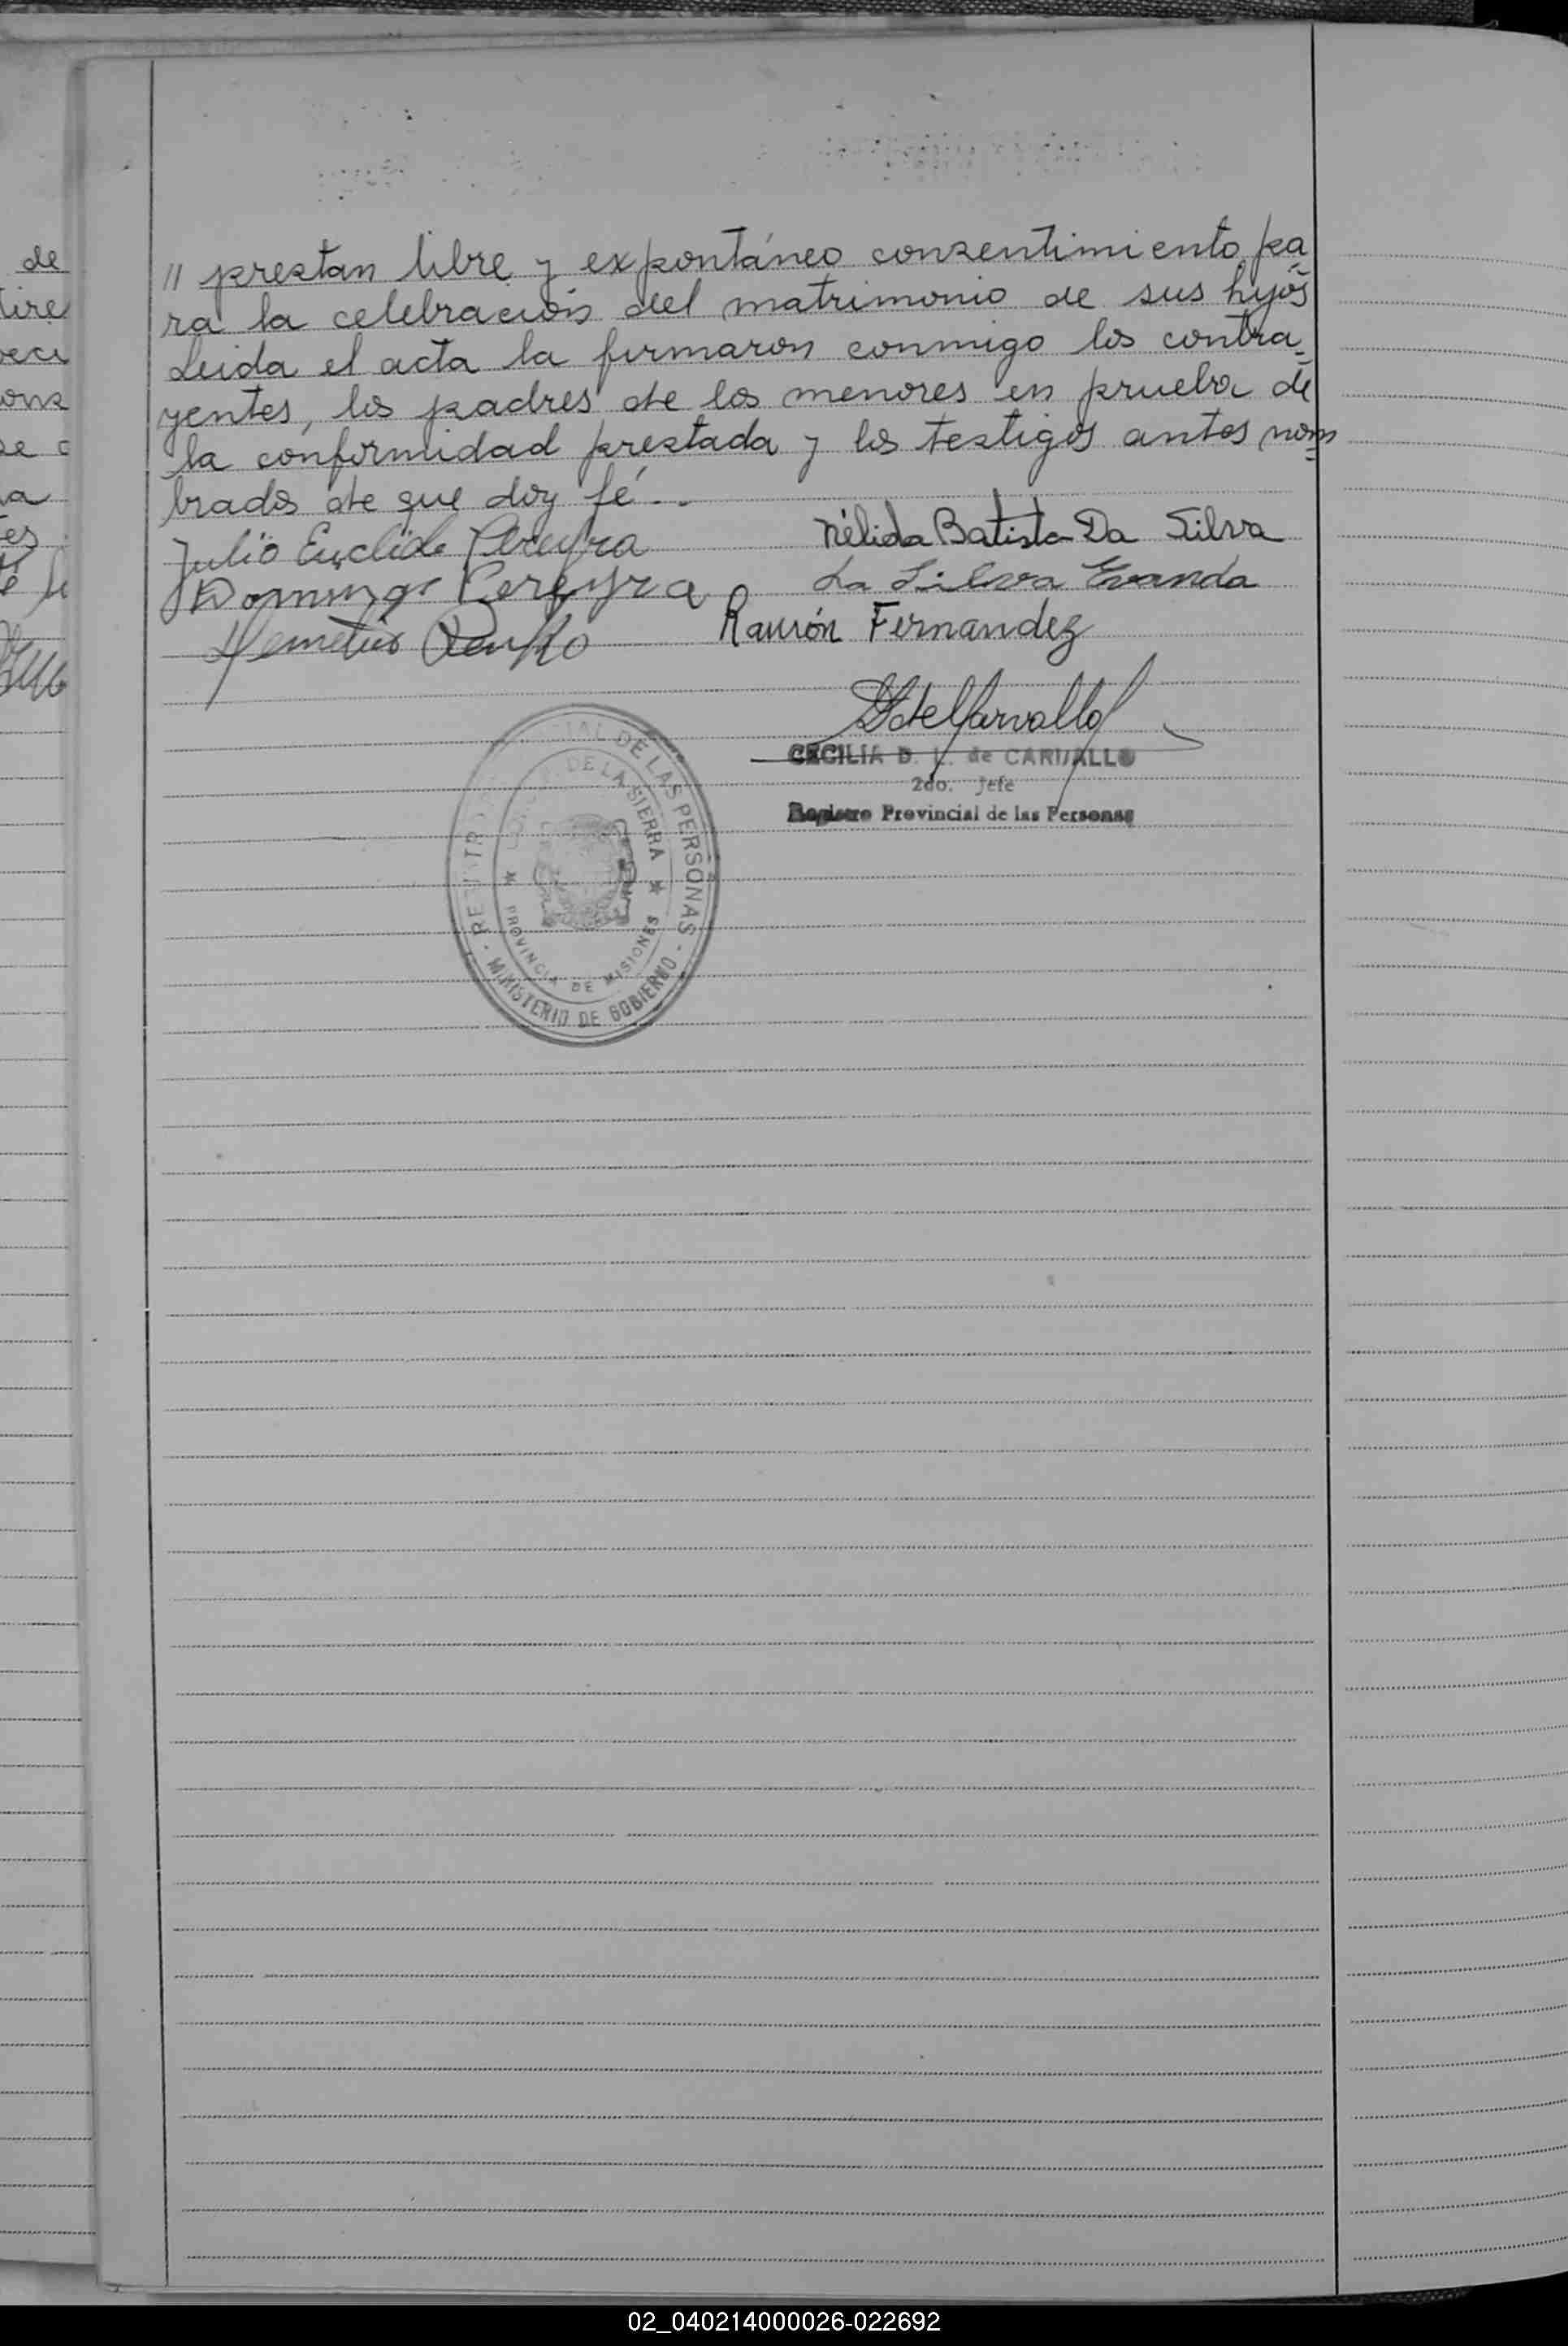 de
tire
// prestan libre y expontáneo consentimiento pa=
ra la celebración del matrimonio de sus hijos
Leida el acta la firmaron conmigo los contra=
yentes, los padres de los menores en prueba de
la conformidad prestada y los testigos antes nom=
brados de que doy fé..
Julio Euclide Pereyra Nélida Batista Da Silva
Domingo Pereyra Da Silva Evanda
Demetrio Ramón Fernandez
CECILIA D. L. de CARVALLO
2do. Jefe
Registro Provincial de las Personas
DE LAS PERSONAS
DE LA SIERRA
PROVINCIA DE MISIONES
MINISTERIO DE GOBIERNO
02_040214000026-022692